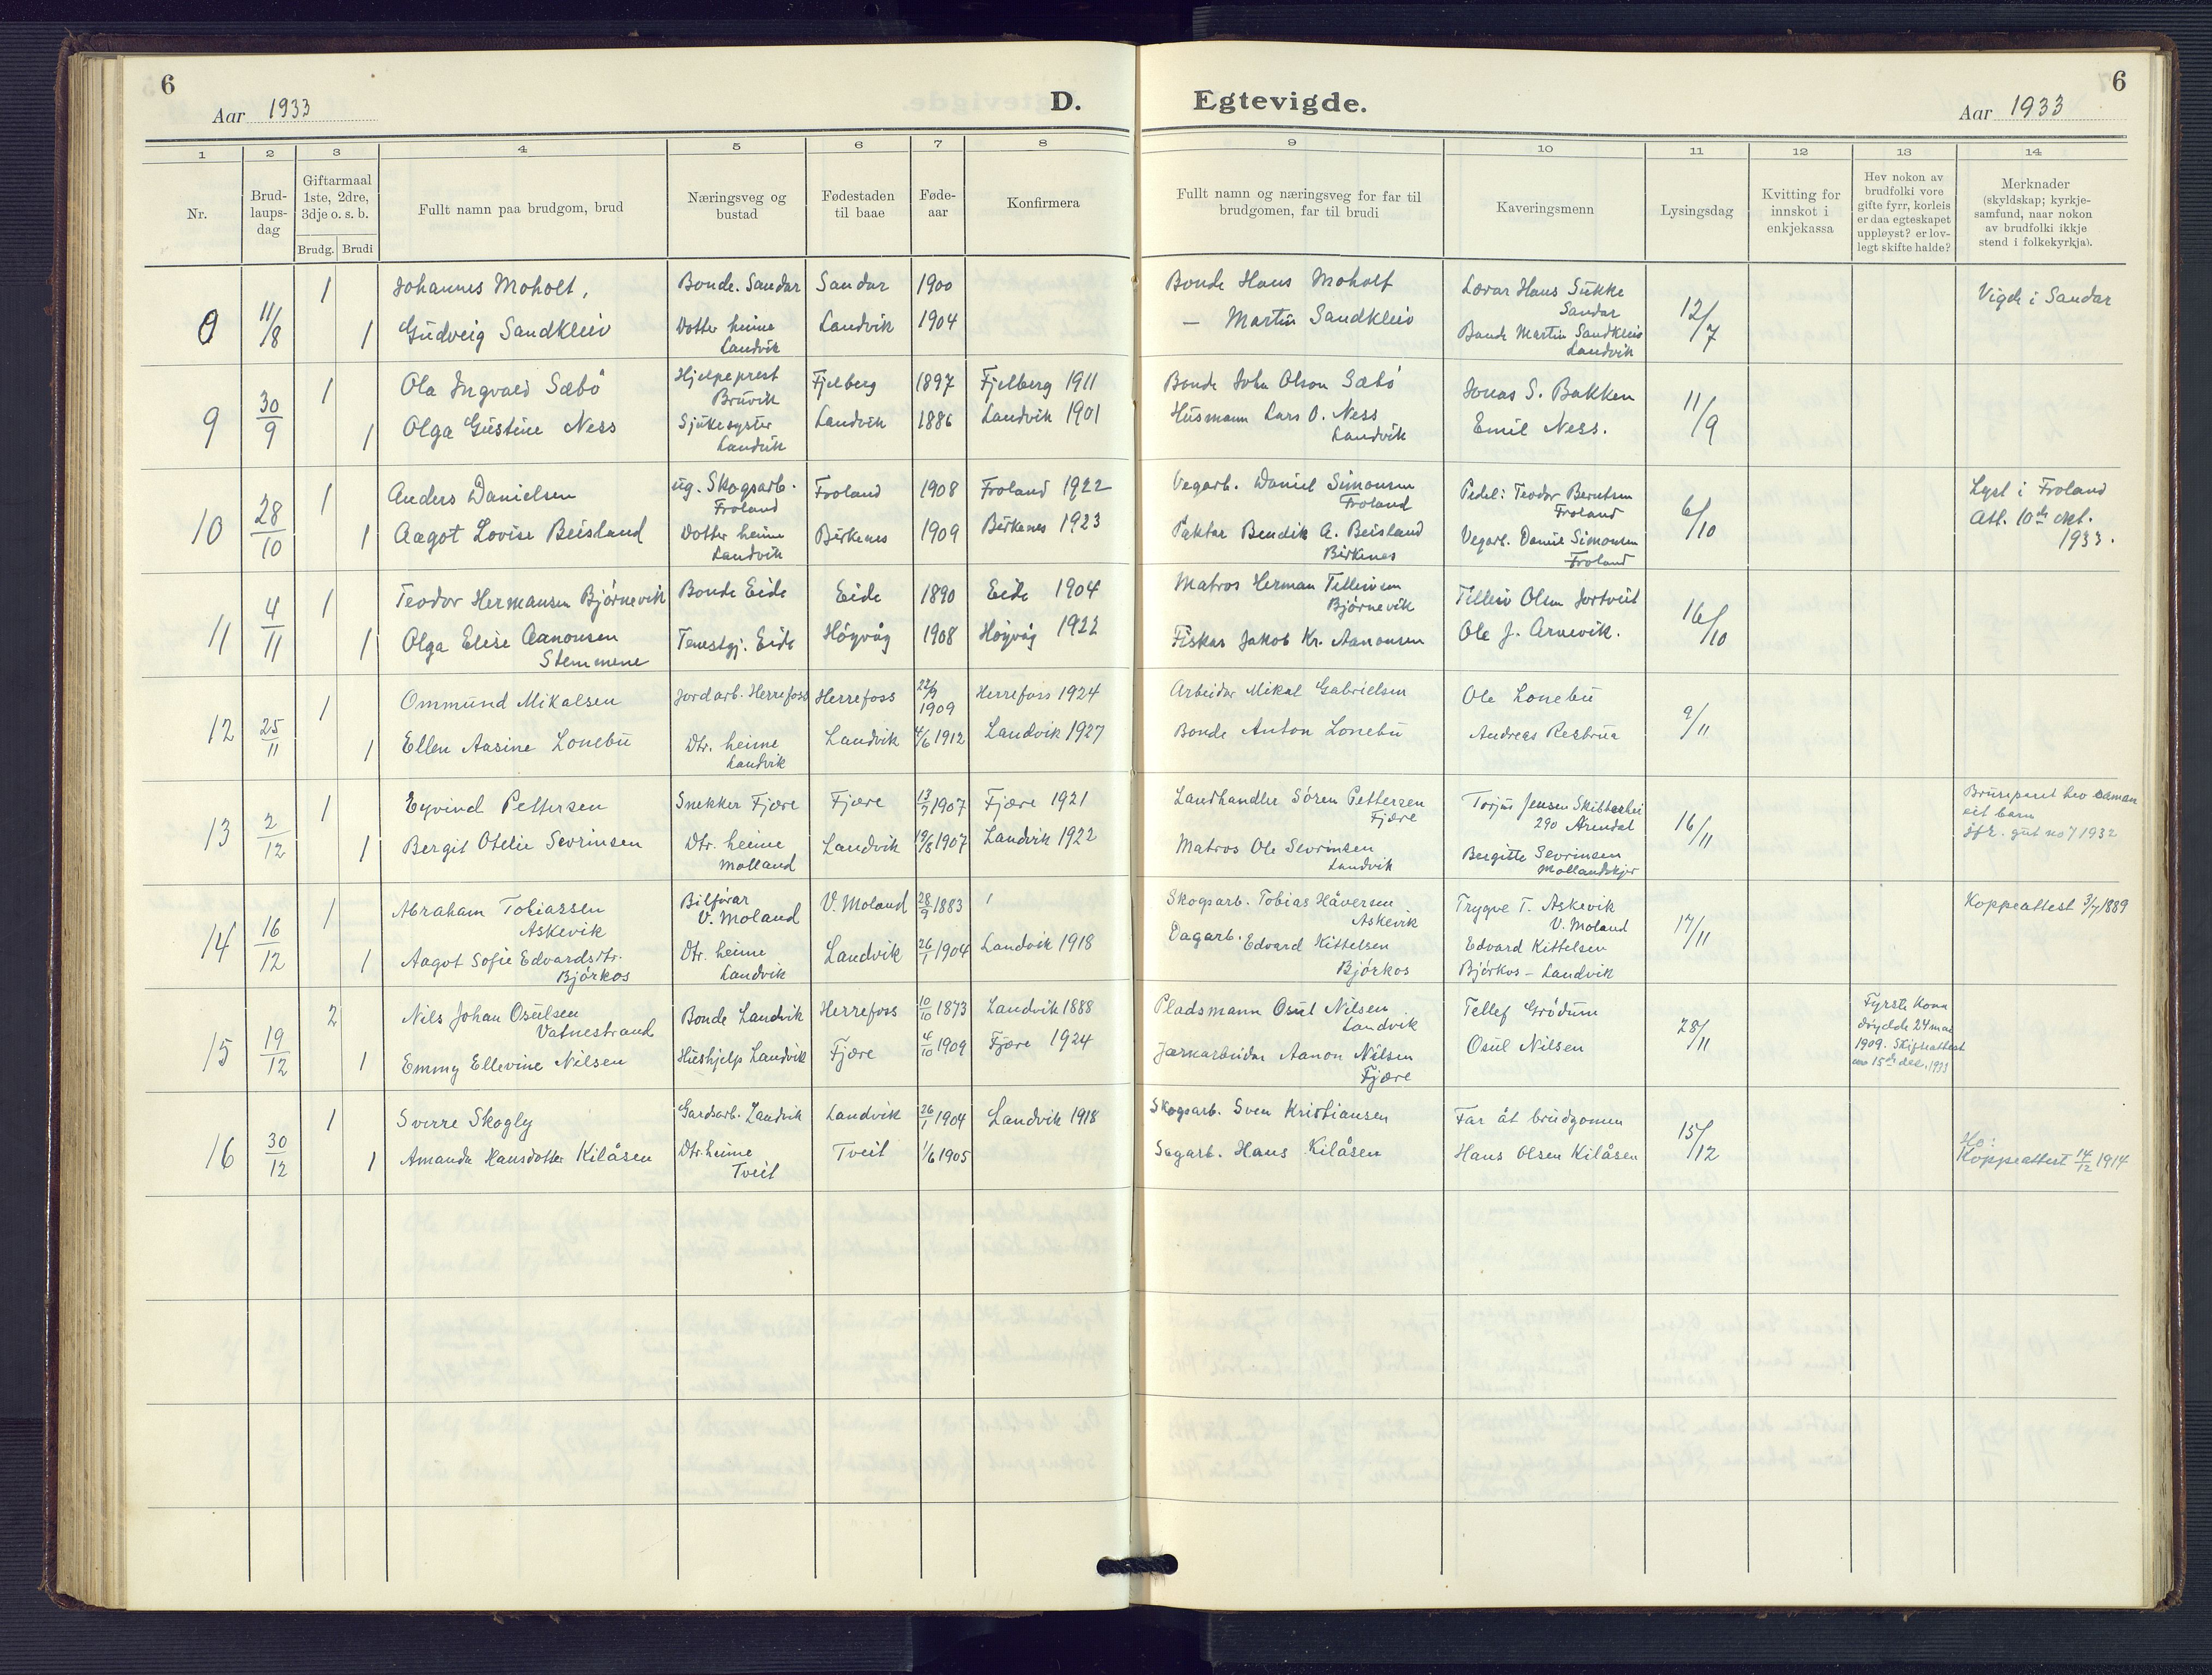 6
Aar 1933
D.
Egtevigde.
Aar 1933
6
1 2 3 4 5 6 7 8 9 10 11 12 13 14
Nr.
Brud-
laups-
dag
Giftarmaal
1ste, 2dre,
3dje o. s. b.
Brudg. Brudi
Fullt namn paa brudgom, brud
Næringsveg og
bustad
Fødestaden
til baae
Føde-
aar
Konfirmera
Fullt namn og næringsveg for far til
brudgomen, far til brudi
Kaveringsmenn
Lysingsdag
Kvitting for
innskot i
enkjekassa
Hev nokon av
brudfolki vore
gifte fyrr, korleis
er daa egteskapet
uppløyst? er lov-
legt skifte halde?
Merknader
(skyldskap; kyrkje-
samfund, naar nokon
av brudfolki ikkje
stend i folkekyrkja).
0 11/8
1 Johannes Moholt, Bonde. Sandar Sandar 1900 Bonde Hans Moholt Lærar Hans Sukke
Sandar
12/7 Vigde i Sandar
1 Gudveig Sandkleiv Dotter heime
Landvik
Landvik 1904 — Martin Sandkleiv Bonde Martin Sandkleiv
Landvik
9 30/9
1 Ola Ingvald Sæbö Hjelpeprest
Bruvik
Fjelberg 1897 Fjelberg 1911 Bonde John Olson Sæbö Jonas S. Bakken 11/9
1 Olga Gustine Ness Sjukesyster
Landvik
Landvik 1886 Landvik 1901 Husmann Lars O. Ness
Landvik
Emil Ness.
10 28/10
1 Anders Danielsen ug. Skogsarb.
Froland
Froland 1908 Froland 1922 Vegarb. Daniel Simonsen
Froland
Pedel: Teodor Berntsen
Froland
6/10 Lyst i Froland
Att. 10de okt.
1933.
1 Aagot Lovise Beisland Dotter heime
Landvik
Birkenes 1909 Birkenes 1923 Paktar Bendik A. Beisland
Birkenes
Vegarb. Daniel Simonsen
Froland
11 4/11
1 Teodor Hermansen Bjørnevik Bonde Eide Eide 1890 Eide 1904 Matros Herman Tellevsen
Bjørnevik
Tellev Olsen Jortveit 16/10
1 Olga Elise Aanonsen
Stemmene
Tenestgj. Eide Höyvåg 1908 Höyvåg 1922 Fiskar Jakob Kr. Aanonsen Ole J. Arnevik.
12 25/11
1 Ommund Mikalsen Jordarb. Herrefoss Herrefoss 22/9
1909
Herrefoss 1924 Arbeidar Mikal Gabrielsen Ole Lonebu 9/11
1 Ellen Aasine Lonebu Dtr. heime
Landvik
Landvik 4/6 1912 Landvik 1927 Bonde Anton Lonebu Andreas Resbrua
13 2/12
1 Eyvind Pettersen Snekker Fjære Fjære 13/7 1907 Fjære 1921 Landhandler Sören Pettersen
Fjære
Torjus Jensen Skitterhei
290 Arendal
16/11 Brureparet hev saman
eit barn
jfr. gut no 7 1932
1 Bergit Otelie Sevrinsen Dtr. heime
Molland
Landvik 19/8 1907 Landvik 1922 Matros Ole Sevrinsen
Landvik
Bergitte Sevrinsen
Mollandskjer
14 16/12
1 Abraham Tobiassen
Askevik
Bilförar
V. Moland
V. Moland 28/9 1883 Skogsarb. Tobias Håversen
Askevik
Trygve T. Askevik
V. Moland
17/11 Koppeattest 3/7 1889
1 Aagot Sofie Edvardsdtr.
Bjórkos
Dtr. heime
Landvik
Landvik 26/1 1904 Landvik 1918 Dagarb. Edvard Kittelsen
Bjórkos
Edvard Kittelsen
Bjórkos – Landvik
15 19/12
2 Nils Johan Osulsen
Vatnestrand
Bonde Landvik Herrefoss 10/10 1873 Landvik 1888 Pladsmann Osul Nilsen
Landvik
Tellef Gródum 28/11 Fyrste kona
döydde 24 mai
1909. Skifteattest
av 15de des. 1933
1 Emmy Ellevine Nilsen Hushjelp Landvik Fjære 4/10 1909 Fjære 1924 Jarnarbeidar Aanon Nilsen
Fjære
Osul Nilsen
16 30/12
1 Sverre Skogly Gardsarb. Landvik Landvik 26/1 1904 Landvik 1918 Skogsarb. Sven Kristiansen Far åt brudgomen 15/12
1 Amanda Hansdotter Kilåsen Dtr. heime
Tveit
Tveit 1/6 1905 Sagarb. Hans Kilåsen Hans Olsen Kilåsen Ho:
Koppeattest 14/12 1914